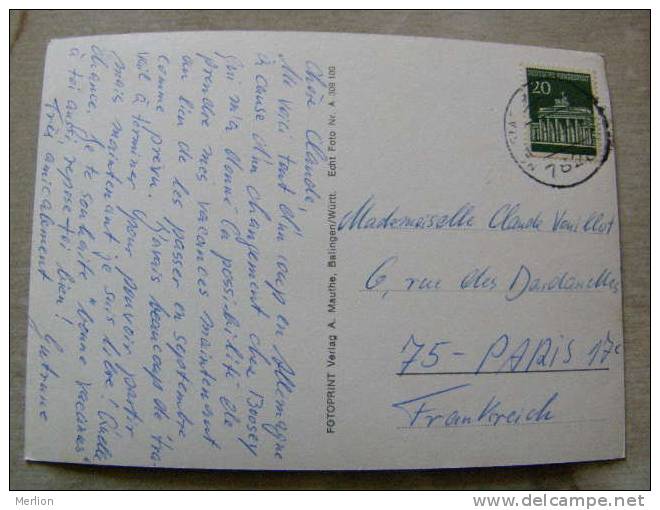 Chère Claude,
Me voici tout d'un coup en Allemagne
à cause d'un changement chez Boosey
qui m'a donné la possibilité de
prendre mes vacances maintenant
au lieu de les passer en septembre
comme prévu. J'avais beaucoup de tra-
vail à terminer pour pouvoir partir
mais maintenant je suis libre! Quelle
chance. Je te souhaite "bonne vacances"
à toi aussi, repose-toi bien!
Très amicalement
FOTOPRINT Verlag A. Mauthe, Balingen/Württ. Echt Foto Nr. A 309 100
20
DEUTSCHE BUNDESPOST
Mademoiselle Claude Veuillot
6, rue des Dardanelles
75 - PARIS 17e
Frankreich
Merlion
www.delcampe.net